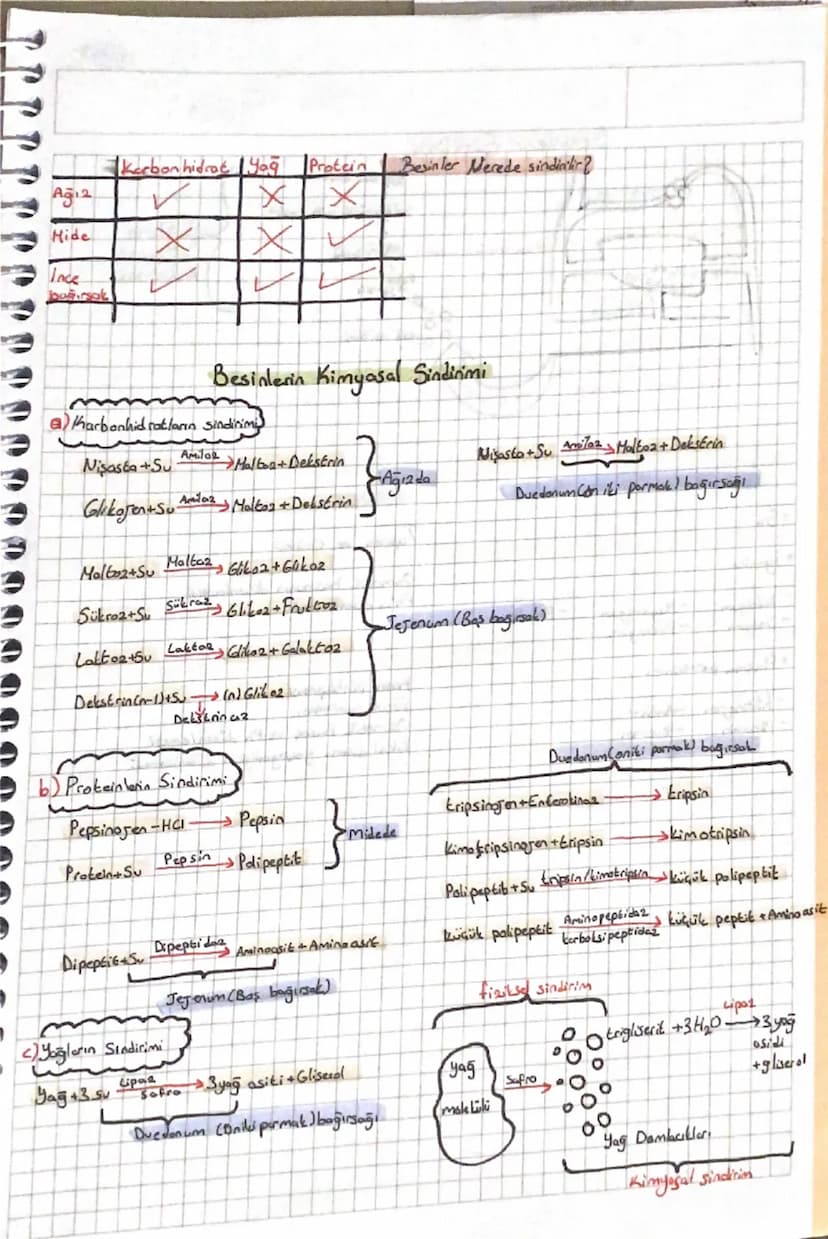 Karbonhidrat Yağ Protein Besinler Nerede sindirilir?
Ağız ✓ X X
Mide X X ✓
İnce bağırsak ✓ ✓ ✓
Besinlerin Kimyasal Sindirimi
a) Karbonhidratların sindirimi
Nişasta + Su Amilaz → Maltoz + Dekstrin
Glikojen + Su Amilaz → Maltoz + Dekstrin
Ağızda
Nişasta + Su Amilaz → Maltoz + Dekstrin
Duedonum (on iki parmak) bağırsağı
Maltoz + Su Maltaz → Glikoz + Glikoz
Sükroz + Su Sükraz → Glikoz + Fruktoz
Laktoz + Su Laktaz → Glikoz + Galaktoz
Dekstrin (n-1) + Su → (n) Glikoz
Dekstrinaz
Jejenum (Boş bağırsak)
b) Proteinlerin Sindirimi
Pepsinojen - HCl → Pepsin
Protein + Su Pepsin → Polipeptit
Midede
Dipeptit + Su Dipeptidaz → Aminoasit + Amino asit
Jejenum (Boş bağırsak)
Duedonum (oniki parmak) bağırsak
tripsinojen + Enterokinaz → tripsin
Kimotripsinojen + tripsin → kimotripsin
Polipeptit + Su tripsin/kimotripsin → küçük polipeptit
küçük polipeptit Aminopeptidaz karboksipeptidaz → küçük peptit + Amino asit
c) Yağların Sindirimi
Yağ + 3 su Lipaz Safra → 3 yağ asiti + Gliserol
Duedonum (Oniki parmak) bağırsağı
fiziksel sindirim
yağ
molekülü
Safra →
trigliserit + 3H₂O Lipaz → 3 yağ
asidi
+ gliserol
Yağ Damlacıkları
Kimyasal sindirim